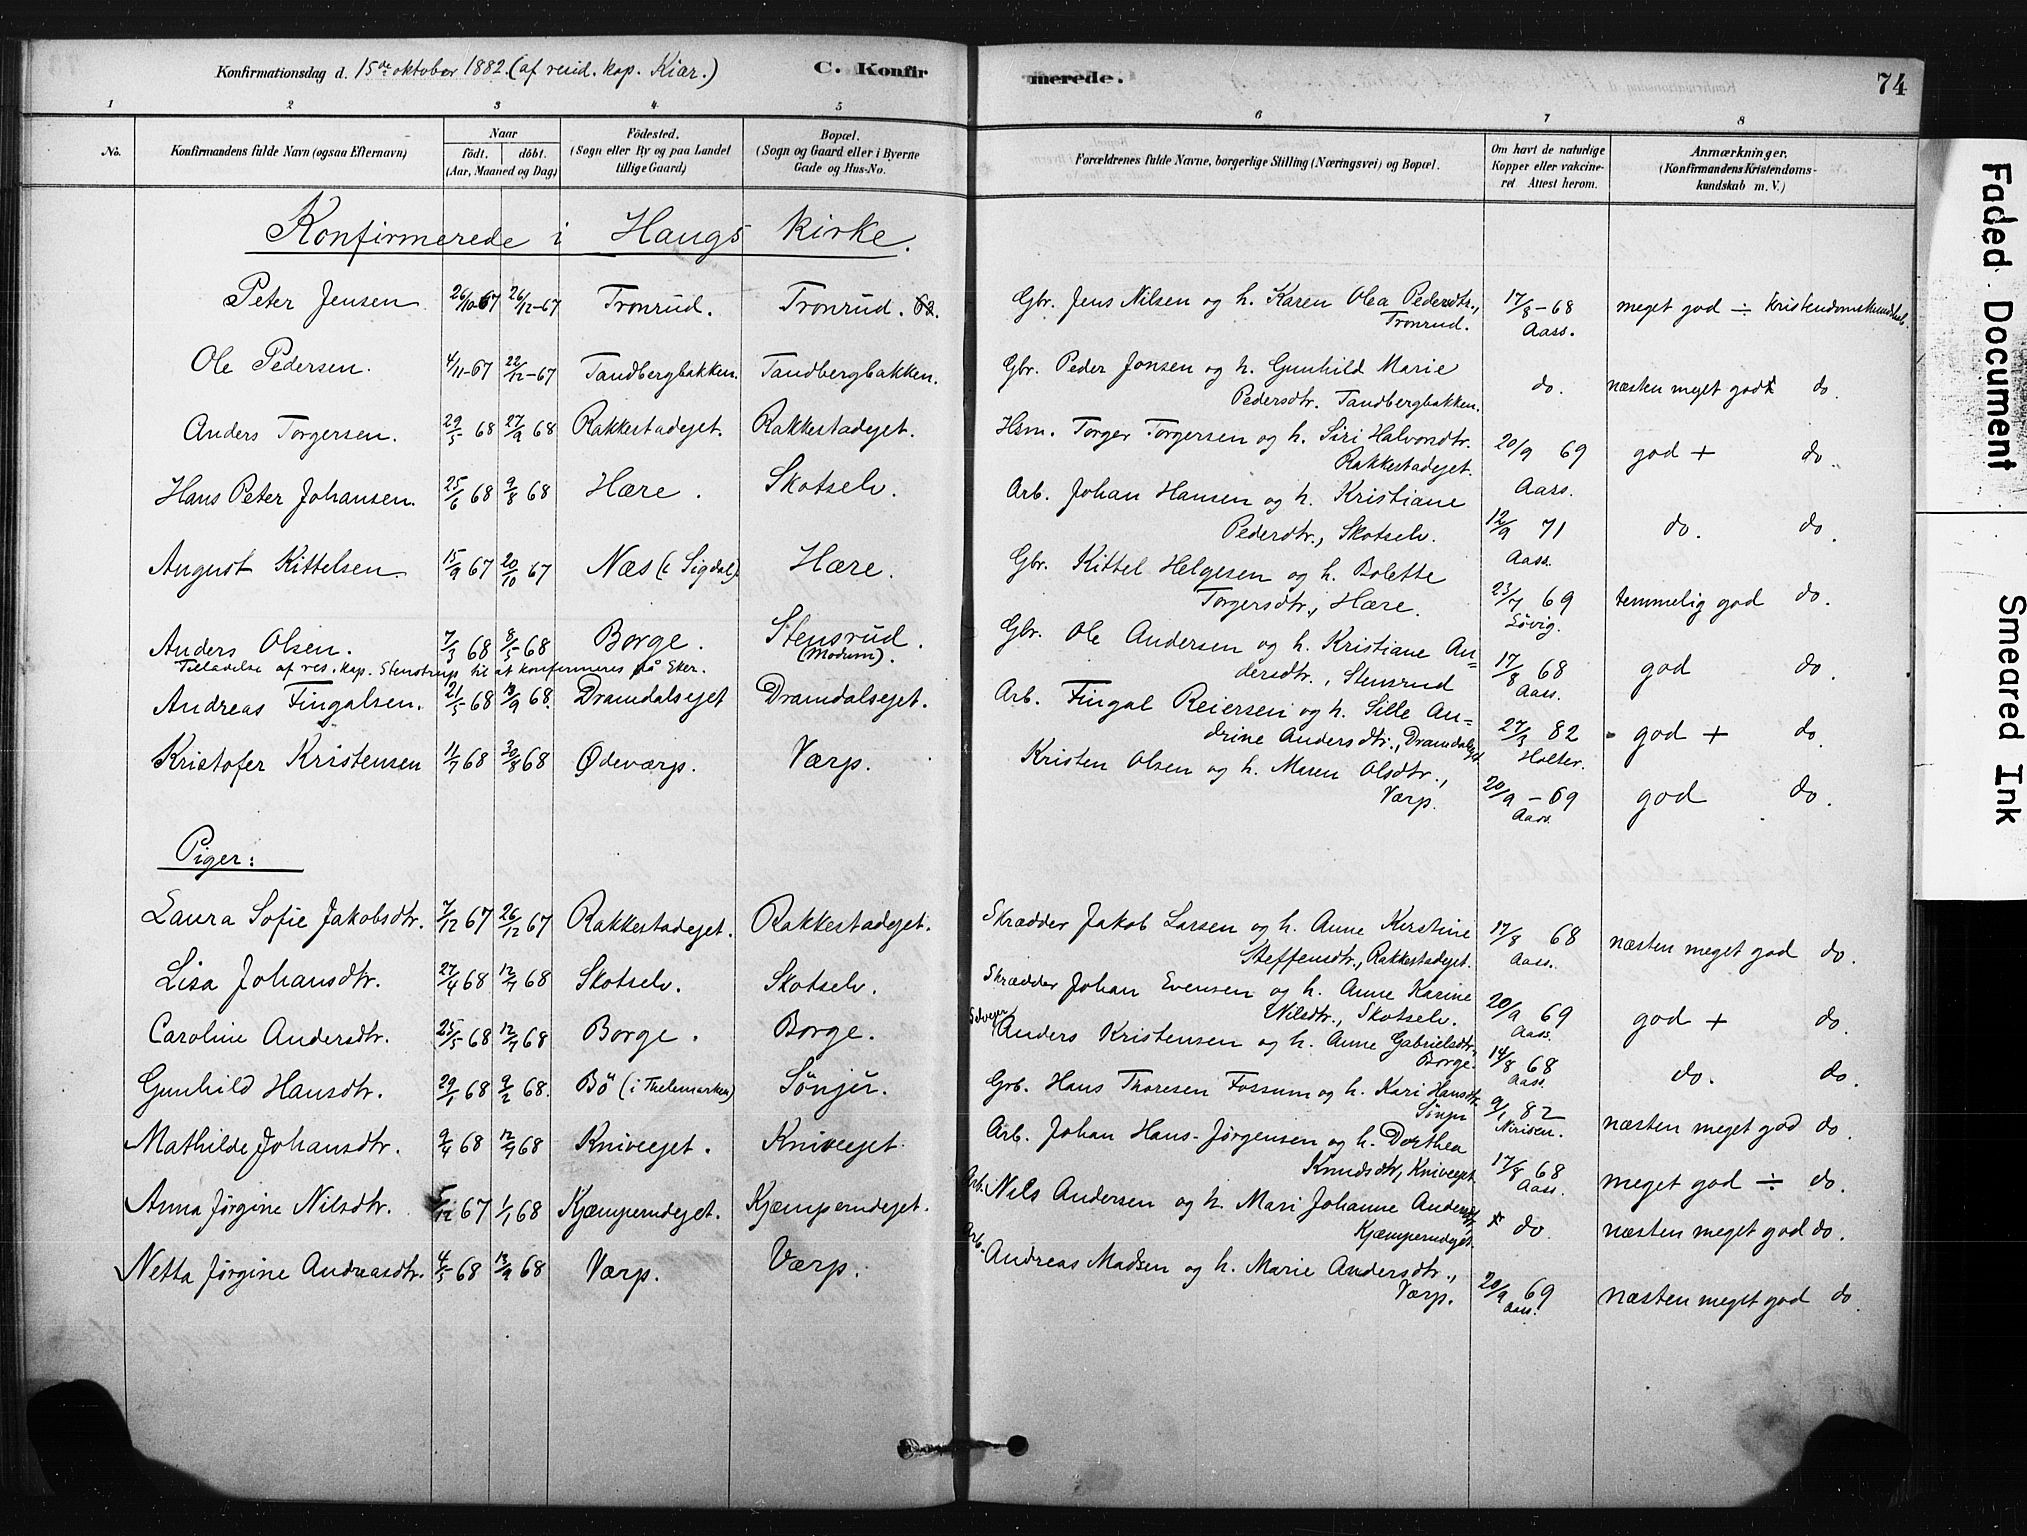 Konfirmationsdag d. 15de oktober 1882. (af resid. kap. Kiær.)
C. Konfirmerede.
74
1 2 3 4 5 6 7 8
No.
Konfirmandens fulde Navn (ogsaa Efternavn)
Naar
födt. döbt.
(Aar, Maaned og Dag)
Födested.
(Sogn eller By og paa Landet
tillige Gaard)
Bopæl.
(Sogn og Gaard eller i Byerne
Gade og Hus-No.
Forældrenes fulde Navne, borgerlige Stilling (Næringsvei) og Bopæl.
Om havt de naturlige
Kopper eller vakcine-
ret Attest herom.
Anmærkninger.
(Konfirmandens Kristendoms-
kundskab m. V.)
Konfirmerede i Haugs Kirke.
Peter Jensen 26/10-67 26/12-67 Tronrud. Tronrud. Gbr. Jens Nilsen og h. Karen Olea Pedersdtr., Tronrud. 17/8-68 Aass. meget god ÷ kristendomskundskab.
Ole Pedersen. 4/11-67 22/12-67 Tandbergbakken. Tandbergbakken. Gbr. Peder Jonsen og h. Gunhild Marie Pedersdtr. Tandbergbakken. do. næsten meget god do.
Anders Torgersen. 29/5 68 27/9 68 Rakkestadejet. Rakkestadejet. Hsm. Torger Torgersen og h. Siri Halvorsdtr. Rakkestadejet. 20/9 69 Aass. god + do.
Hans Peter Johansen. 25/6 68 9/8 68 Hære. Skotselv. Arb. Johan Hansen og h. Kristiane Pedersdtr., Skotselv. 12/9 71 Aass. do. do.
August Kittelsen. 15/9 67 20/10 67 Næs (i Sigdal). Hære. Gbr. Kittel Helgesen og h. Bolette Torgersdtr., Hære. 23/7 69 Lövig. temmelig god do.
Anders Olsen. 7/3 68 8/5 68 Borge. Stensrud. (Modum). Gbr. Ole Andersen og h. Kristiane Andersdtr., Stensrud 17/8 68 Aass. god do.
Tilladelse af res. kap. Stenstrup til at konfirmeres på Eker.
Andreas Fingalsen. 21/5 68 13/9 68. Dramdalsejet Dramdalsejet. Arb. Fingal Reiersen og h. Sille Andrine Andersdtr., Dramdalsejet 27/3 82 Holter. god + do.
Kristofer Kristensen 11/7 68 30/8 68 Ødeværp. Værp. Kristen Olsen og h. Maren Olsdtr., Værp. 20/9-69 Aass. god do.
Piger:
Laura Sofie Jakobsdtr. 7/12 67 26/12 67 Rakkestadejet. Rakkestadejet. Skrædder Jakob Larsen og h. Anne Kirstine Steffensdtr., Rakkestadejet. 17/8 68 Aass. næsten meget god do.
Lisa Johansdtr. 27/4 68 12/7 68 Skotselv. Skotselv. Skrædder Johan Evensen og h. Anne Karine Nilsdtr., Skotselv. 20/9 69 Aass. god + do.
Caroline Andersdtr. 25/5 68 12/7 68 Borge. Borge. Selvejer Anders Kristensen og h. Anne Gabrielsdtr., Borge. 14/8 68 Aass. do. do.
Gunhild Hansdtr. 29/1 68 9/2 68. Bö (i Thelemarken) Sönjur. Grb. Hans Thoresen Fossum og h. Kari Hansdtr. 9/1 82 næsten meget god do.
Mathilde Johansdtr. 9/4 68 12/7 68 Kniveejet. Kniveejet. Arb. Johan Hans-Jørgensen og h. Dorthea Knudsdtr., Kniveejet 17/8 68 Aass. meget god ÷ do.
Anna Jørgine Nilsdtr. 5/12 67 1/1 68 Kjæmperudejet. Kjæmperudejet. Arb. Nils Andersen og h. Mari Johanne Andersdtr, Kjæmperudejet. do. næsten meget god do.
Netta Jørgine Andreasdtr. 4/5 68 13/9 68 Værp. Værp. Arb. Andreas Madsen og h. Marie Andersdtr., Værp. 20/9 69 Aass. næsten meget god do.
Faded Document
Smeared Ink